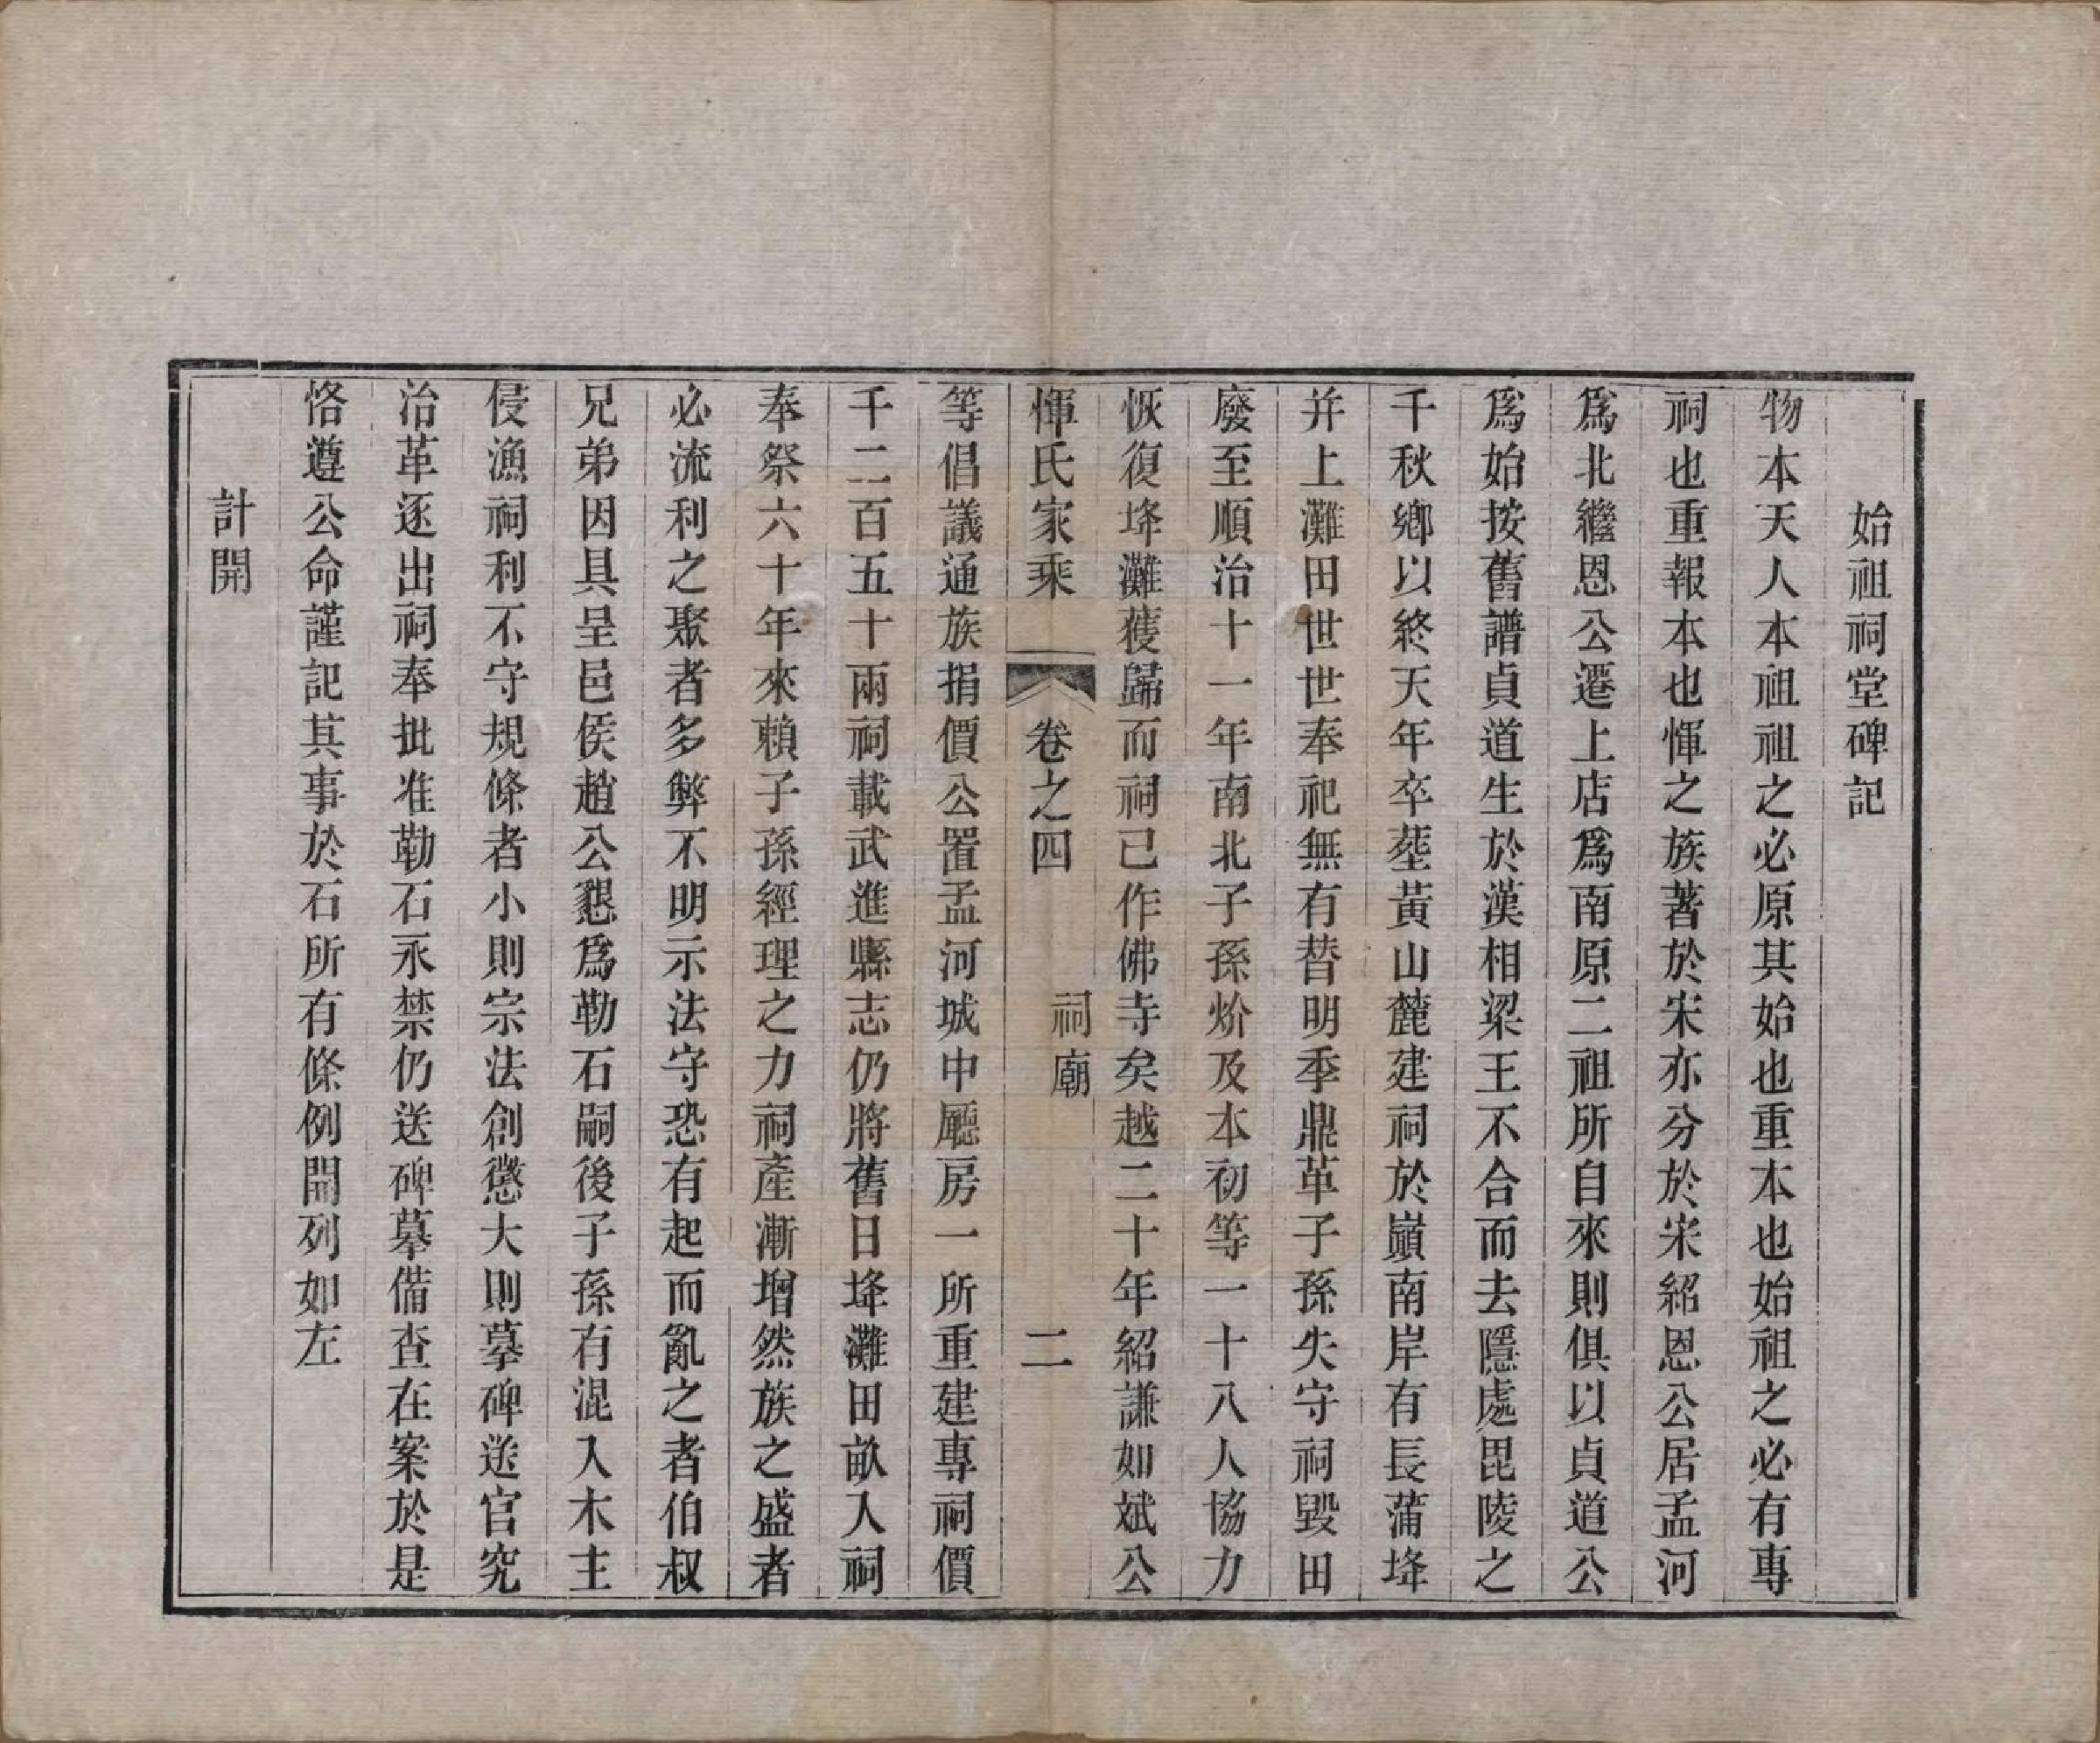 始祖祠堂碑記
物本天人本祖祖之必原其始也重本也始祖之必有專
祠也重報本也惲之族著於宋亦分於宋紹恩公居孟河
爲北繼恩公遷上店爲南原二祖所自來則俱以貞道公
爲始按舊譜貞道生於漢相梁王不合而去隱處毘陵之
千秋鄉以終天年卒塟黃山麓建祠於巔南岸有長蒲埄
并上灘田世世奉祀無有替明季鼎革子孫失守祠毀田
廢至順治十一年南北子孫炌及本初等一十八人協力
恢復埄灘獲歸而祠已作佛寺矣越二十年紹謙如斌公
惲氏家乘 卷之四 祠廟 二
等倡議通族捐價公置孟河城中廳房一所重建專祠價
千二百五十兩祠載武進縣志仍將舊日埄灘田畝入祠
奉祭六十年來賴子孫經理之力祠產漸增然族之盛者
必流利之聚者多弊不明示法守恐有起而亂之者伯叔
兄弟因具呈邑侯趙公懇爲勒石嗣後子孫有混入木主
侵漁祠利不守規條者小則宗法創懲大則摹碑送官究
治革逐出祠奉批准勒石永禁仍送碑摹備查在案於是
恪遵公命謹記其事於石所有條例開列如左
計開